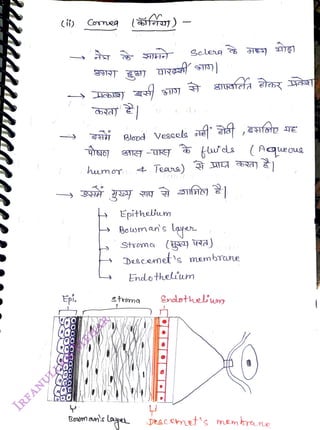 (ii) Cornea (कॉर्निया) -
→ नेत्र के सामने Sclera के मध्य थोड़ा
हुआ पारदर्शी भाग|
→ प्रकाश इसी भाग से अपवर्तित होकर प्रवेश
करता है|
→ इसमें Blood Vessels नहीं होती, इसलिए यह
पोषण आस-पास के fluids (Aqueous
humor & Tears) से प्राप्त करता है|
→ इसमें मुख्य रूप से शामिल है|
→ Epithelium
→ Bowman's layer
→ Stroma (मुख्य परत)
→ Descemet's membrane
→ Endothelium
Epi. stroma Endothelium
Bowman's layer Descemet's membrane